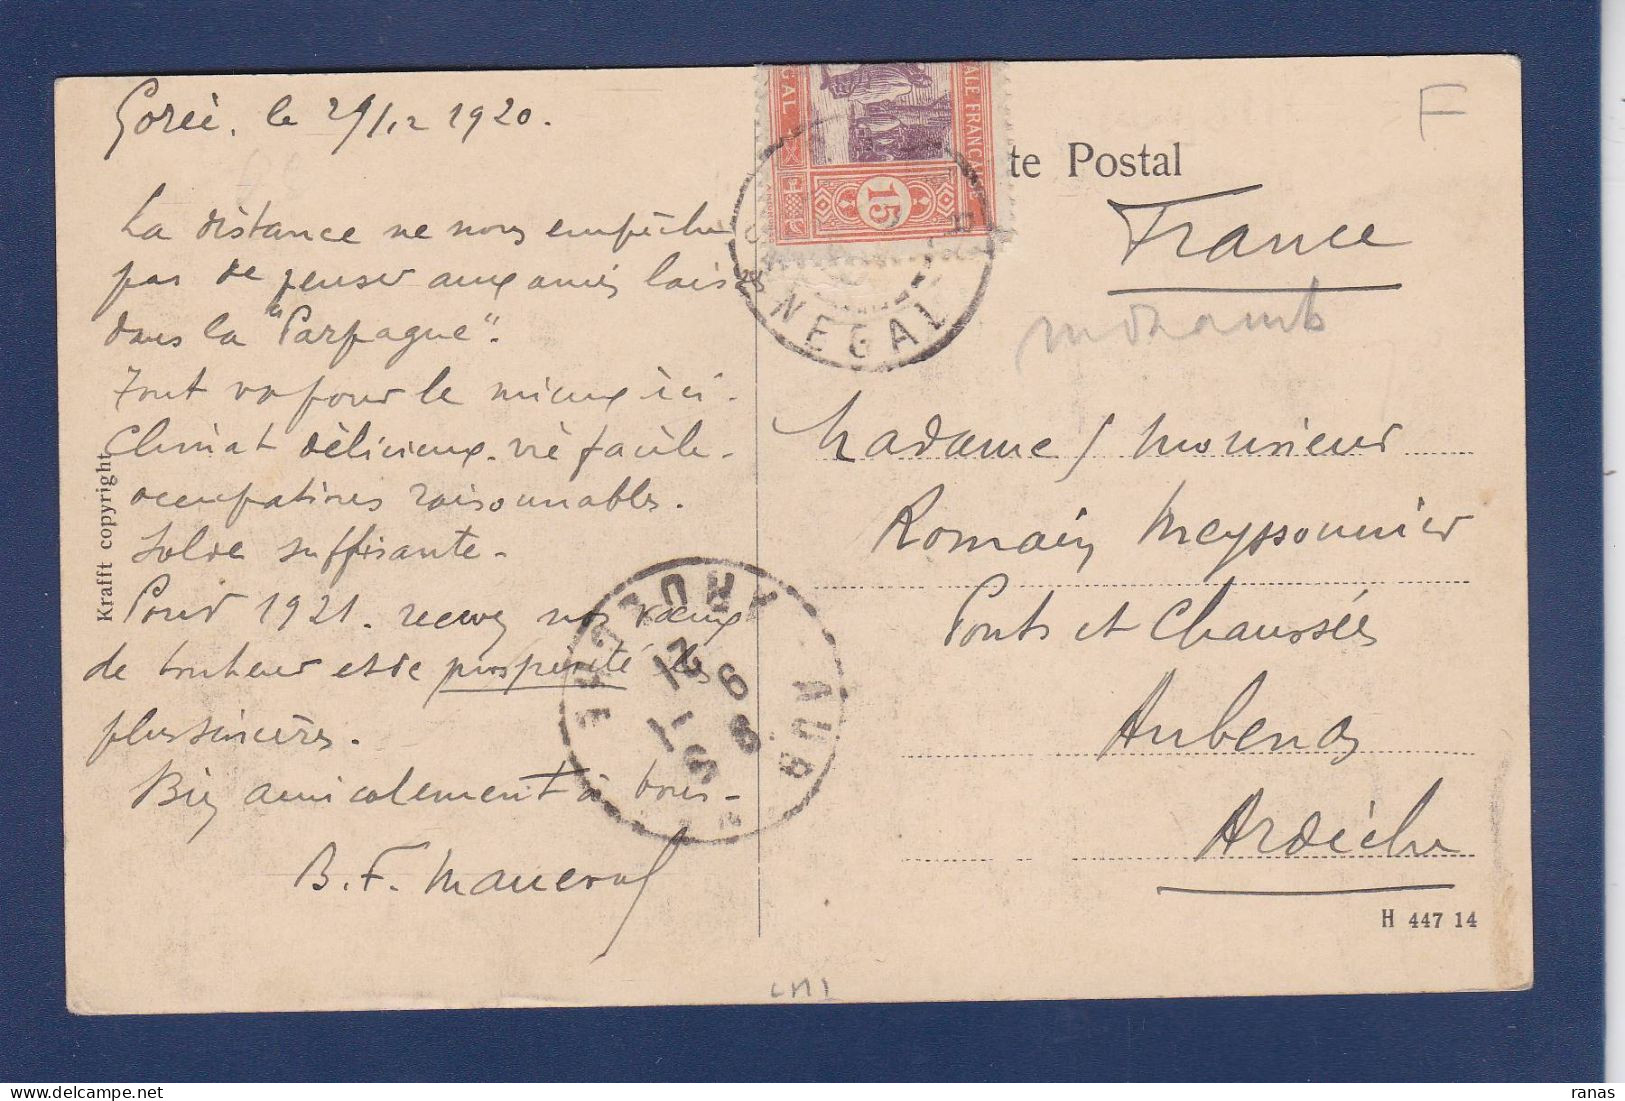 Gorée, le 29/12 1920.
La distance ne nous empêche
pas de penser aux amis laissés
dans la "Parpagne".
Tout va pour le mieux ici.
Climat délicieux. vie facile.
occupations raisonnables.
Solde suffisante.
Pour 1921. recevez nos vœux
de bonheur et de prosperité les
plus sincères.
Bien amicalement à tous.
B. F.
Krafft copyright
te Postal
F
France
Madame / Monsieur
Romain Meyssonnier
Ponts et Chaussées
Aubenas
Ardèche
H 447 14
GAL
ALE FRANÇ
15
NEGAL
ARDECHE
AUB
21
ranas